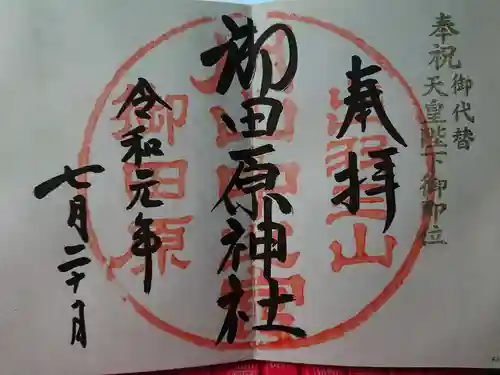 奉祝 御代替
天皇陛下御即位
奉拝
御田原神社
令和元年
七月二十八日
御田原